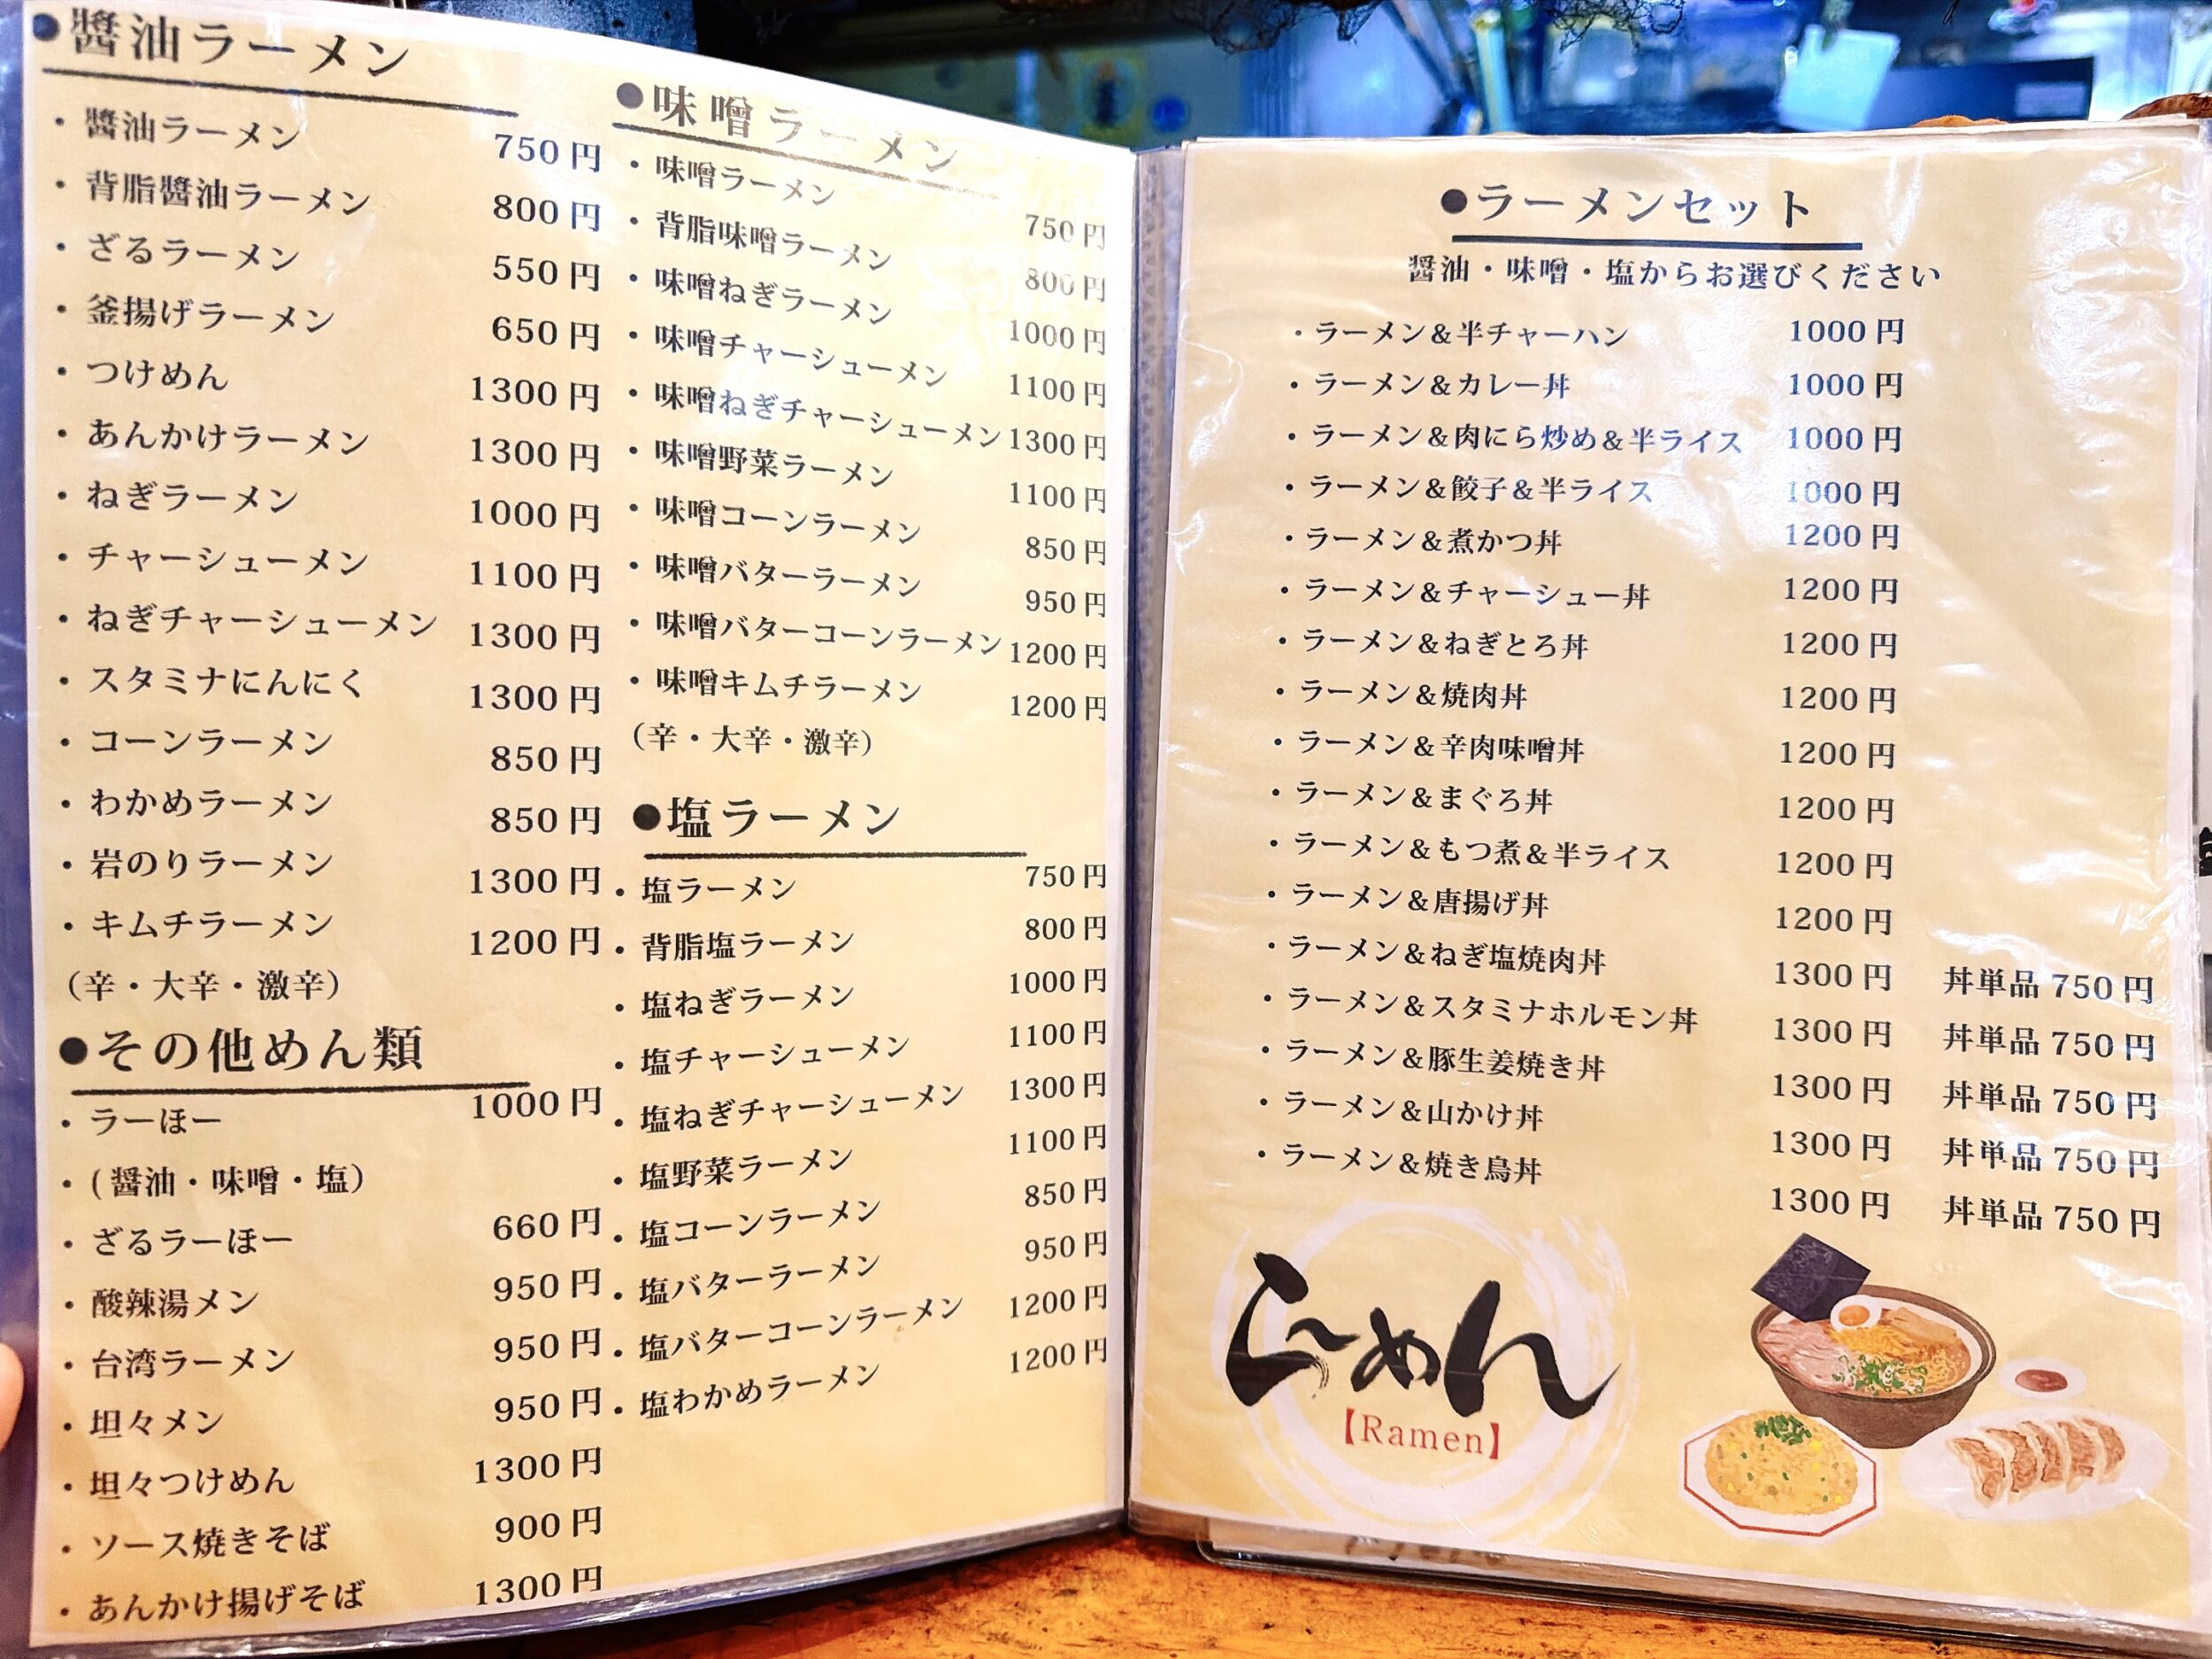 ●醬油ラーメン
・醬油ラーメン 750円
・背脂醬油ラーメン 800円
・ざるラーメン 550円
・釜揚げラーメン 650円
・つけめん 1300円
・あんかけラーメン 1300円
・ねぎラーメン 1000円
・チャーシューメン 1100円
・ねぎチャーシューメン 1300円
・スタミナにんにく 1300円
・コーンラーメン 850円
・わかめラーメン 850円
・岩のりラーメン 1300円
・キムチラーメン 1200円
(辛・大辛・激辛)
●その他めん類
・ラーほー 1000円
・(醤油・味噌・塩)
・ざるラーほー 660円
・酸辣湯メン 950円
・台湾ラーメン 950円
・坦々メン 950円
・坦々つけめん 1300円
・ソース焼きそば 900円
・あんかけ揚げそば 1300円
●味噌ラーメン
・味噌ラーメン 750円
・背脂味噌ラーメン 800円
・味噌ねぎラーメン 1000円
・味噌チャーシューメン 1100円
・味噌ねぎチャーシューメン 1300円
・味噌野菜ラーメン 1100円
・味噌コーンラーメン 850円
・味噌バターラーメン 950円
・味噌バターコーンラーメン 1200円
・味噌キムチラーメン 1200円
(辛・大辛・激辛)
●塩ラーメン
・塩ラーメン 750円
・背脂塩ラーメン 800円
・塩ねぎラーメン 1000円
・塩チャーシューメン 1100円
・塩ねぎチャーシューメン 1300円
・塩野菜ラーメン 1100円
・塩コーンラーメン 850円
・塩バターラーメン 950円
・塩バターコーンラーメン 1200円
・塩わかめラーメン 1200円
●ラーメンセット
醤油・味噌・塩からお選びください
・ラーメン＆半チャーハン 1000円
・ラーメン＆カレー丼 1000円
・ラーメン＆肉にら炒め＆半ライス 1000円
・ラーメン＆餃子＆半ライス 1000円
・ラーメン＆煮かつ丼 1200円
・ラーメン＆チャーシュー丼 1200円
・ラーメン＆ねぎとろ丼 1200円
・ラーメン＆焼肉丼 1200円
・ラーメン＆辛肉味噌丼 1200円
・ラーメン＆まぐろ丼 1200円
・ラーメン＆もつ煮＆半ライス 1200円
・ラーメン＆唐揚げ丼 1200円
・ラーメン＆ねぎ塩焼肉丼 1300円 丼単品 750円
・ラーメン＆スタミナホルモン丼 1300円 丼単品 750円
・ラーメン＆豚生姜焼き丼 1300円 丼単品 750円
・ラーメン＆山かけ丼 1300円 丼単品 750円
・ラーメン＆焼き鳥丼 1300円 丼単品 750円
らーめん
【Ramen】